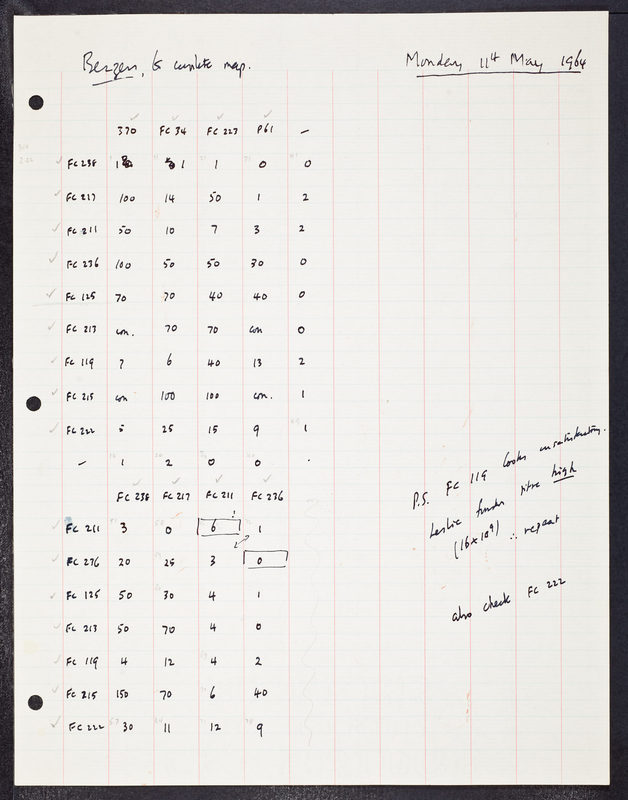 Bergen, to complete map. Monday 11th May 1964
370 FC 34 FC 227 P61 —
FC 238 1 1 0 0
FC 217 100 14 50 1 2
FC 211 50 10 7 3 2
FC 236 100 50 50 30 0
FC 125 70 70 40 40 0
FC 213 con. 70 70 con 0
FC 119 7 6 40 13 2
FC 215 con 100 100 con. 1
FC 222 5 25 15 9 1
— 1 2 0 0 .
FC 238 FC 217 FC 211 FC 236
FC 211 3 0 6 1
FC 276 20 25 3 0
FC 125 50 30 4 1
FC 213 50 70 4 0
FC 119 4 12 4 2
FC 215 150 70 6 40
FC 222 30 11 12 9
P.S. FC 119 looks unsatisfactory.
Leslie finds titre high
(16×10⁹) ∴ repeat
also check FC 222